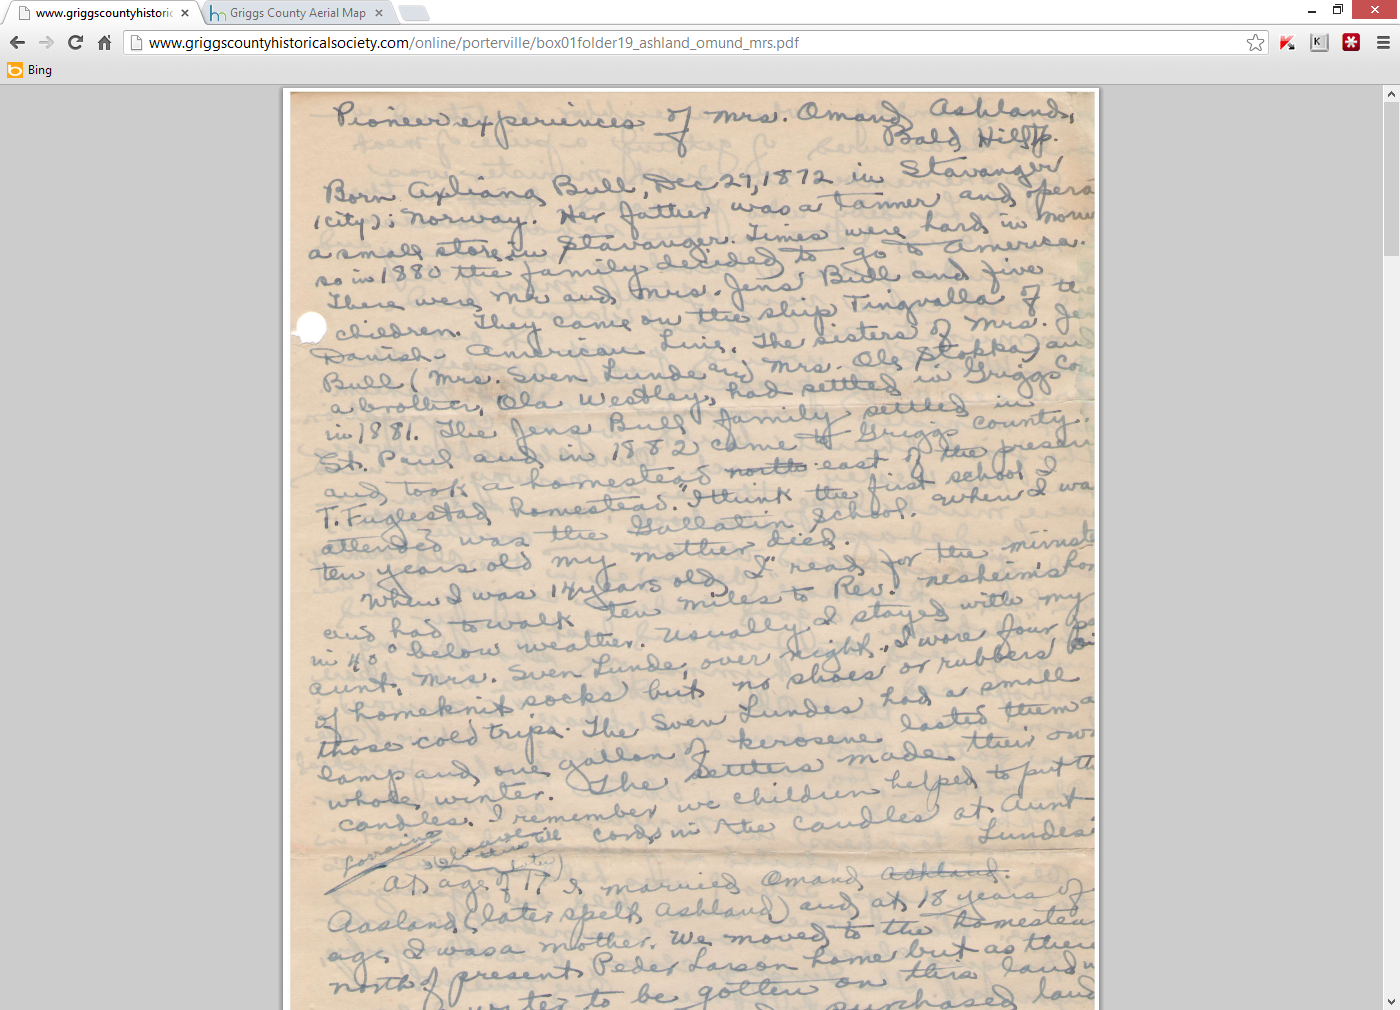 www.griggscountyhistoric
Griggs County Aerial Map
www.griggscountyhistoricalsociety.com/online/porterville/box01folder19_ashland_omund_mrs.pdf
Bing
Pioneer experiences of Mrs. Omand Ashland,
Bald Hill Tp.
Born Axliana Bull, Dec 29, 1872 in Stavanger
(city); Norway. Her father was a tanner and opera
a small store in Stavanger. Times were hard in Norw
so in 1880 the family decided to go to America.
There were Mr and Mrs. Jens Bull and five
children. They came on the ship Tingvalla of the
Danish-American Line. The sisters of Mrs. Je
Bull (Mrs. Sven Lunde and Mrs. Ole Stokka) and
a brother, Ola Westley, had settled in Griggs Co
in 1881. The Jens Bull family settled in
St. Paul and in 1882 came to Griggs county.
and took a homestead north east of the presen
T. Fuglestad homestead. "I think the first school I
attended was the Gallatin School. When I wa
ten years old my mother died.
When I was 14 years old, I "read for the ministe
and had to walk ten miles to Rev. Nesheim's hom
in 40° below weather. Usually I stayed with my
aunt, Mrs. Sven Lunde, over night. I wore four pa
of homeknit socks but no shoes or rubbers on
those cold trips. The Sven Lundes had a small
lamp and one gallon of kerosene lasted them a
whole winter. The settlers made their own
candles. I remember we children helped to put th
cords in the candles at Aunt
Lundes
Lorraine
At age of 17 I married Omand Ashland.
Aasland (later spelt Ashland) and at 18 years of
age I was a mother. We moved to the homestea
north of present Peder Larson home but as there
water to be gotten on this land w
purchased land